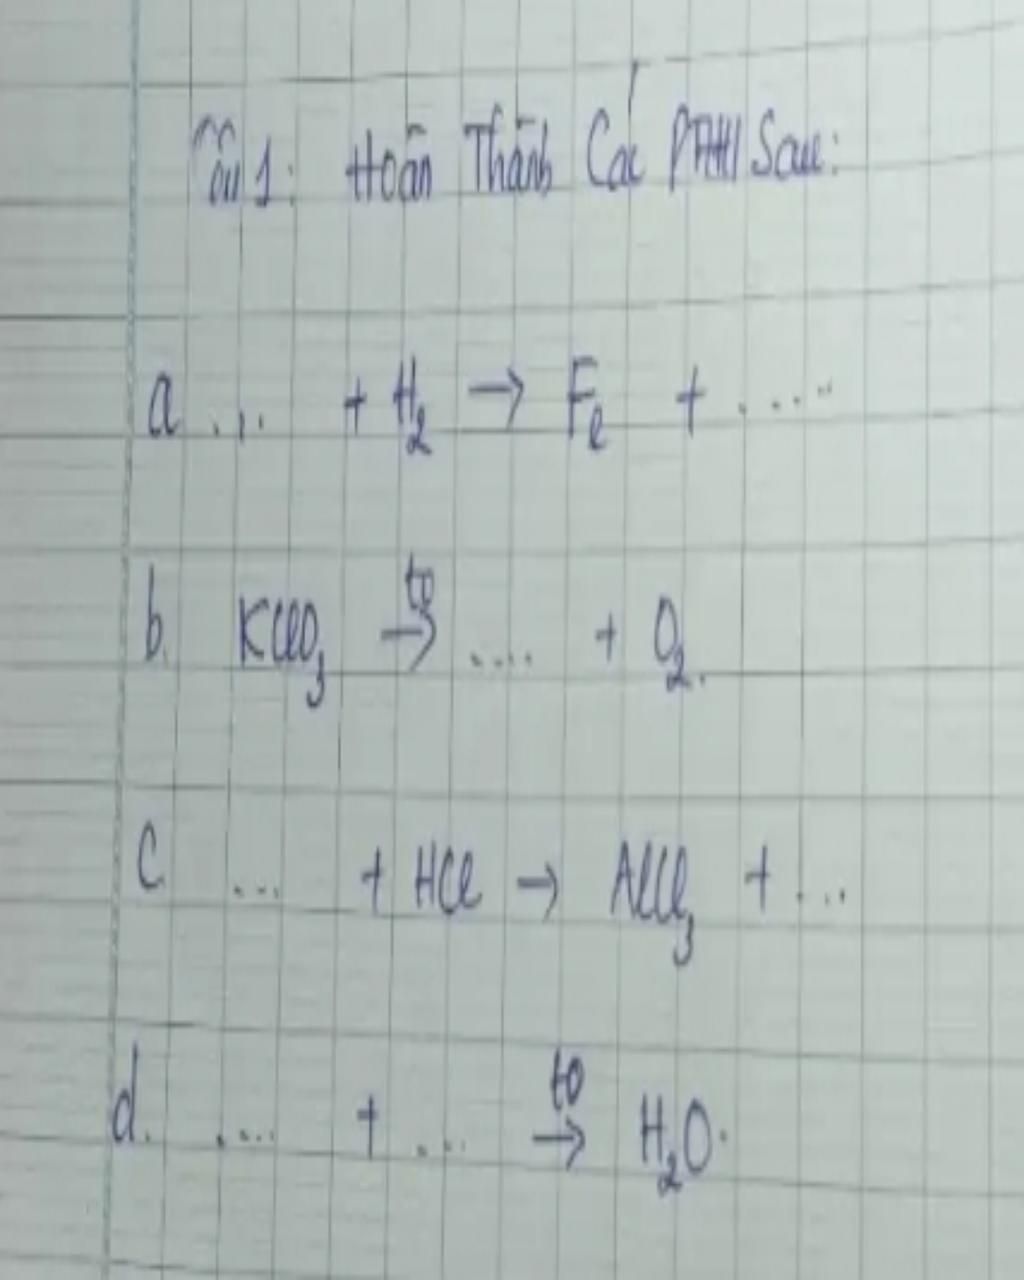 Câu 1: Hoàn Thành Các PTHH Sau:
a .... + H₂ → Fe + .....
b. KClO₃ →(to) .... + O₂.
c. ... + HCl → AlCl₃ + ...
d. .... + .... →(to) H₂O.